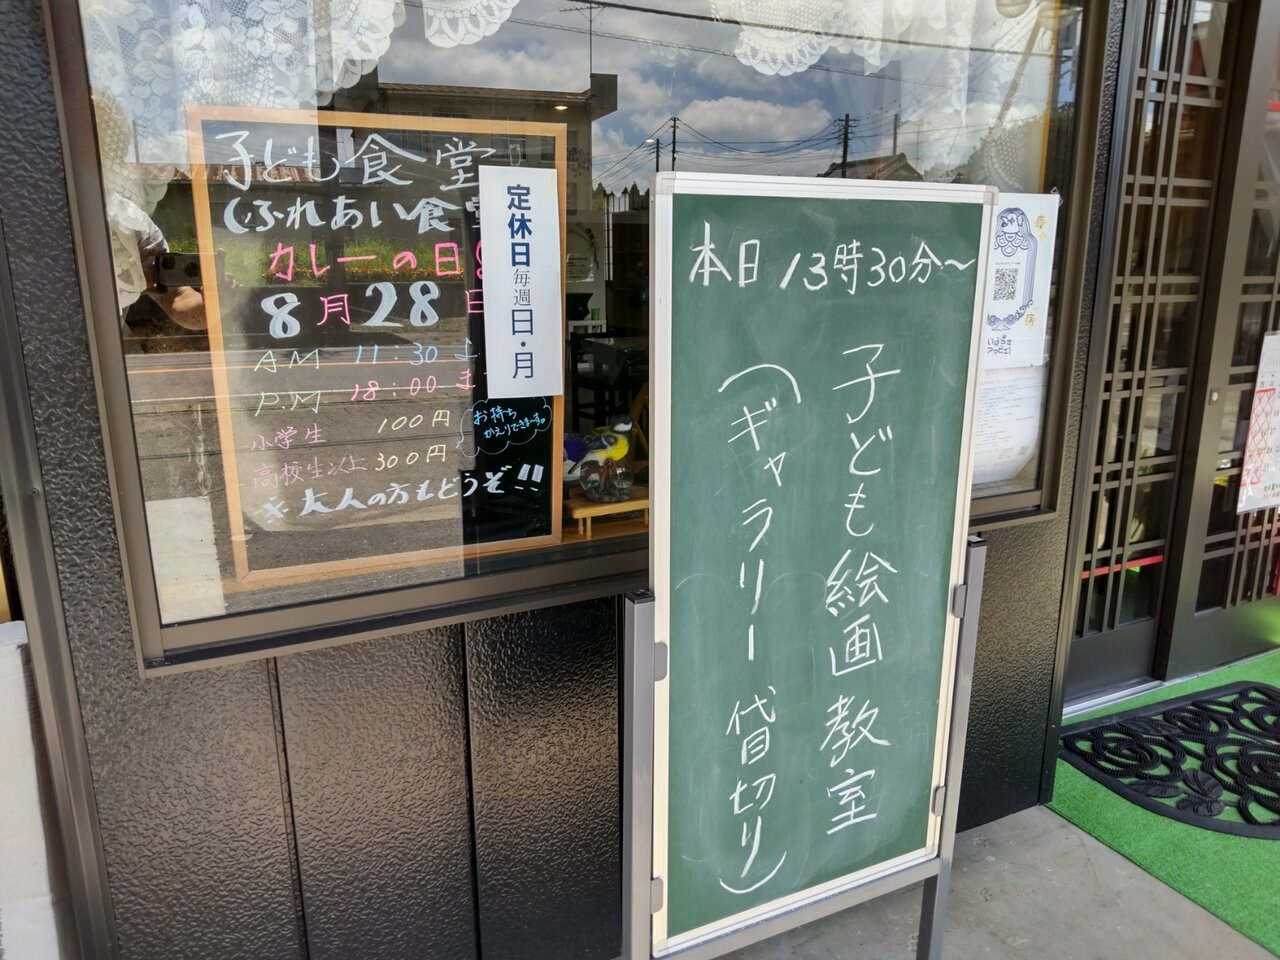 子ども食堂
(ふれあい食堂
カレーの日
8月28日
A.M 11:30よ
P.M 18:00ま
小学生 100円
高校生以上 300円
お持ち
かえりできま〜す。
※大人の方もどうぞ!!
定休日 毎週 日・月
本日 13時30分〜
子ども絵画教室
(ギャラリー 貸切り)